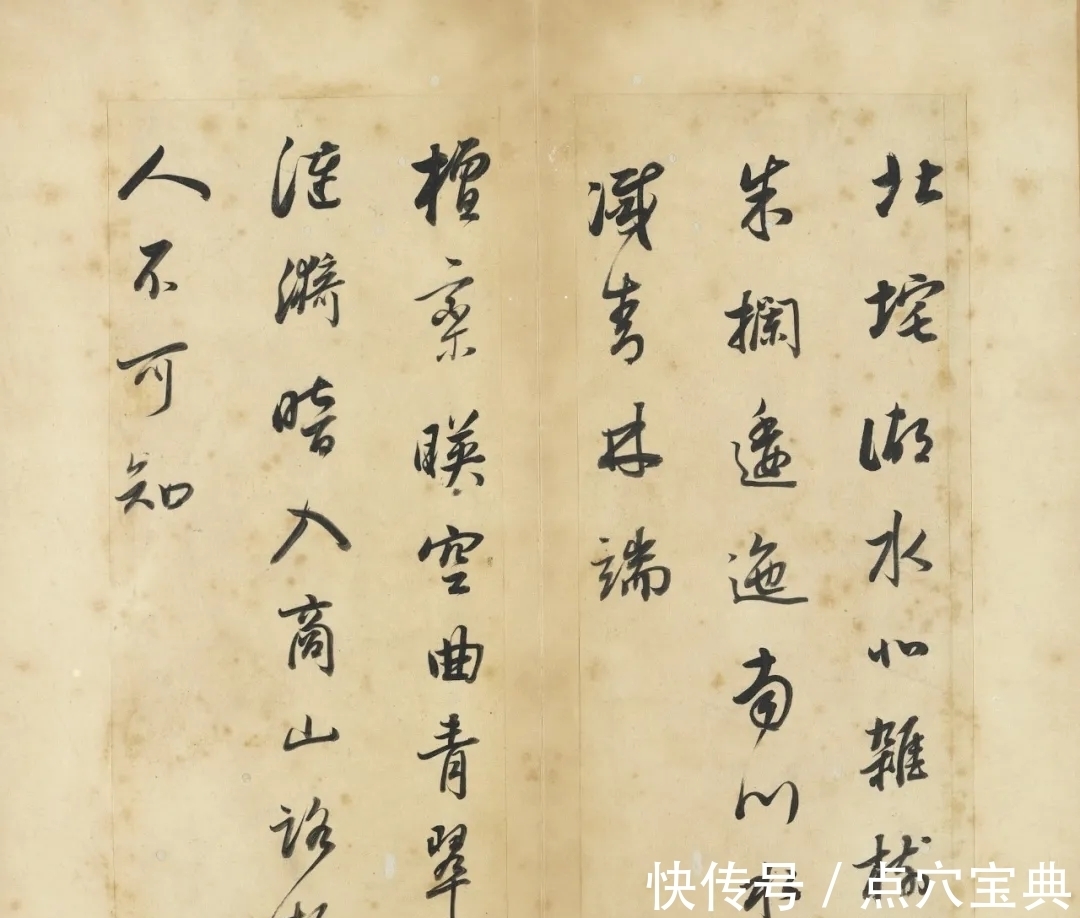 北垞湖水北雜樹
朱欄逶迤南川水
滅青林端
檀欒暎空曲青翠
漣漪暗入商山路
人不可知
快传号 / 点穴宝典